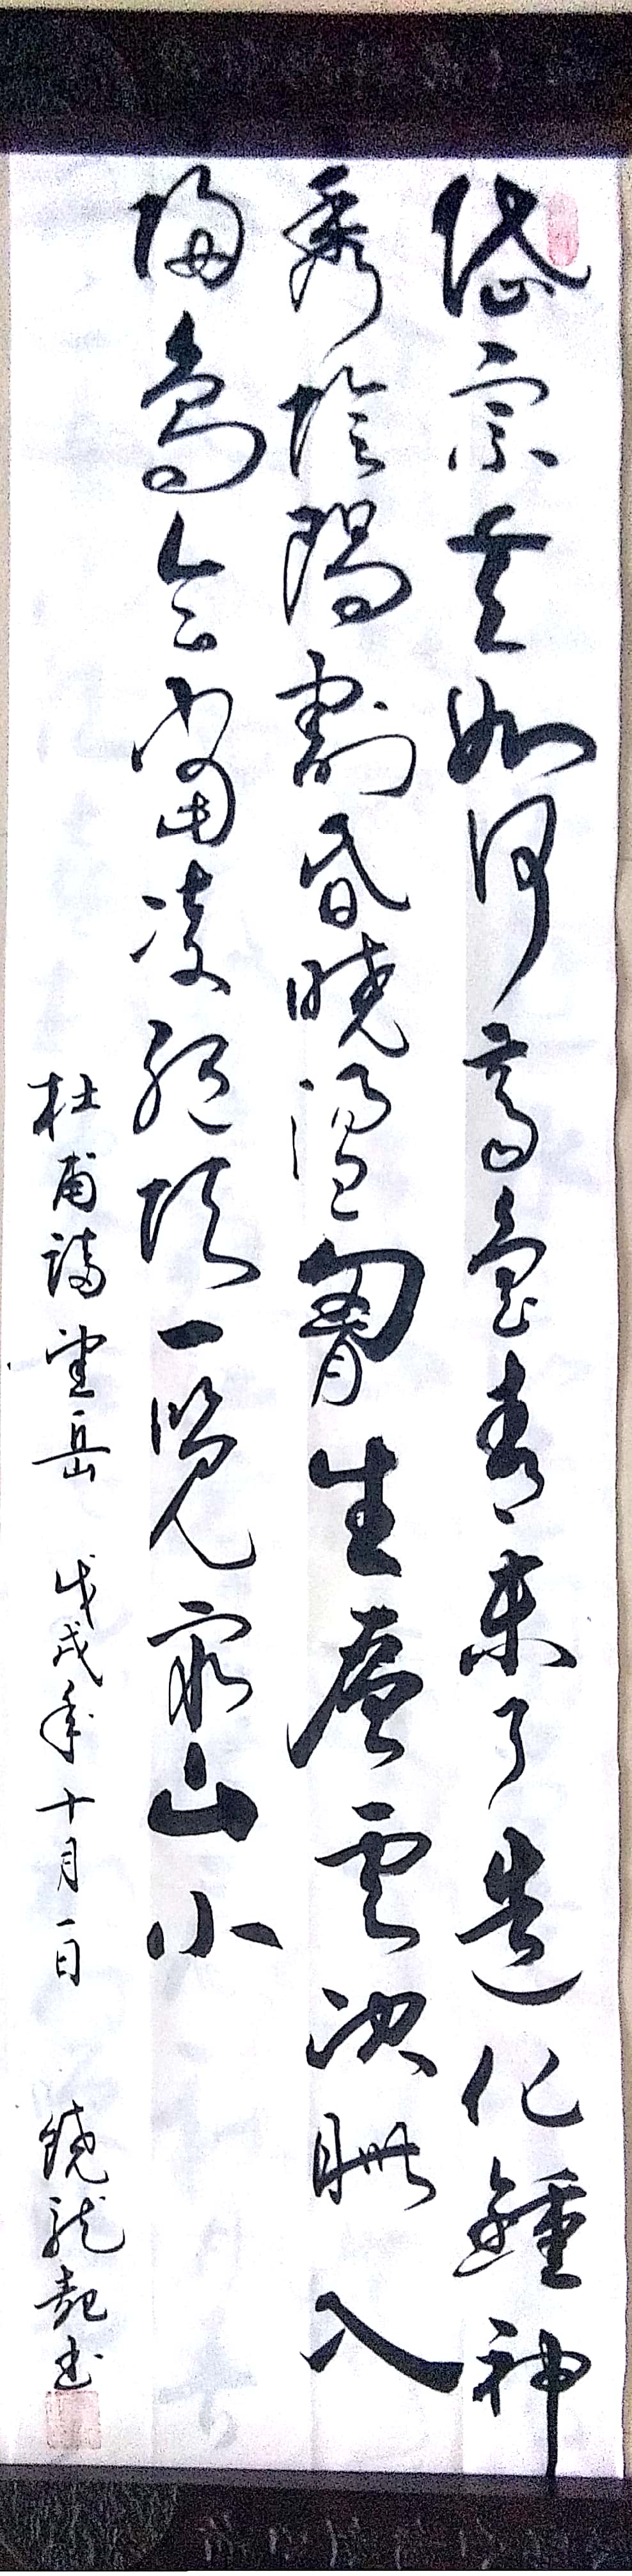 岱宗夫如何齊魯青未了造化鍾神
秀陰陽割昏曉盪胷生層雲決眥入
歸鳥會當凌絕頂一覽眾山小
杜甫詩望岳 戊戌年十月一日 饒龍書